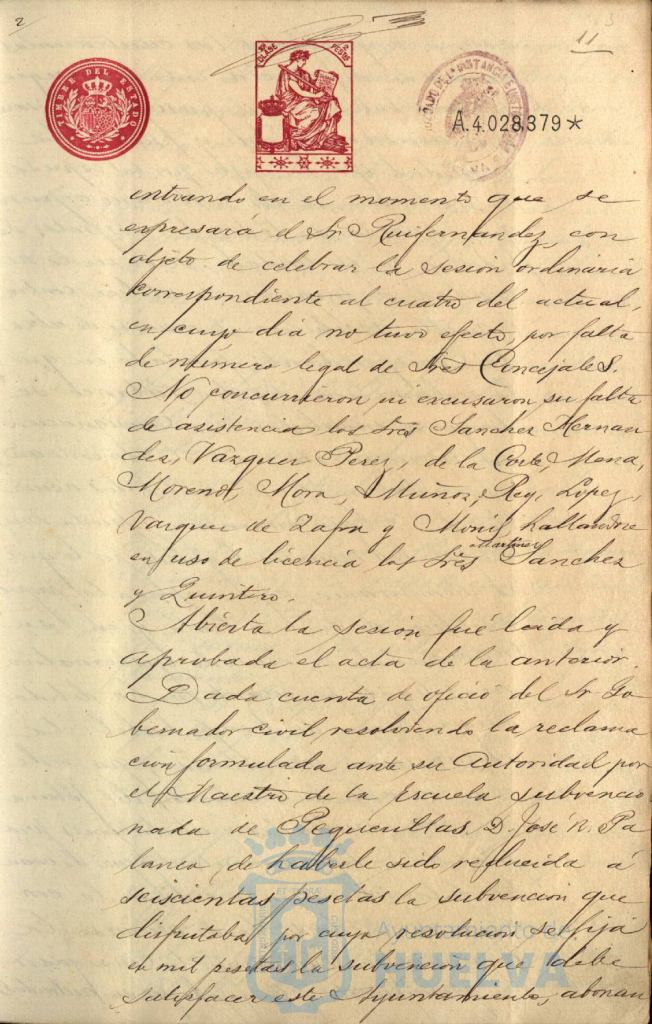 2
11
TIMBRE DEL ESTADO
CLASE
PESTAS
A.4.028,379*
entrando en el momento que se
expresará el Sr Ruifernandez, con
objeto de celebrar la sesion ordinaria
correspondiente al cuatro del actual,
en cuyo dia no tuvo efecto, por falta
de número legal de Sres Concejales.
No concurrieron ni excusaron su falta
de asistencia los Sres Sanchez Hernan
dez, Vazquez Perez, de la Corte, Mena,
Moreno, Mora, Muñoz, Rey, Lopez,
Vazquez de Zafra y Monis, hallandose
en uso de licencia los Sres Martinez Sanchez
y Quintero.
Abierta la sesion fué leida y
aprobada el acta de la anterior.
Dada cuenta de oficio del Sr Go
bernador civil, resolviendo la reclama
cion formulada ante su Autoridad por
el Maestro de la escuela subvencio
nada de Peguerillas D. José N. Pa
lanco, de haberle sido reducida á
seiscientas pesetas la subvencion que
disfrutaba, por cuya resolucion se fija
en mil pesetas la subvencion que debe
satisfacer este Ayuntamiento, abonan
Ayuntamiento de
HUELVA